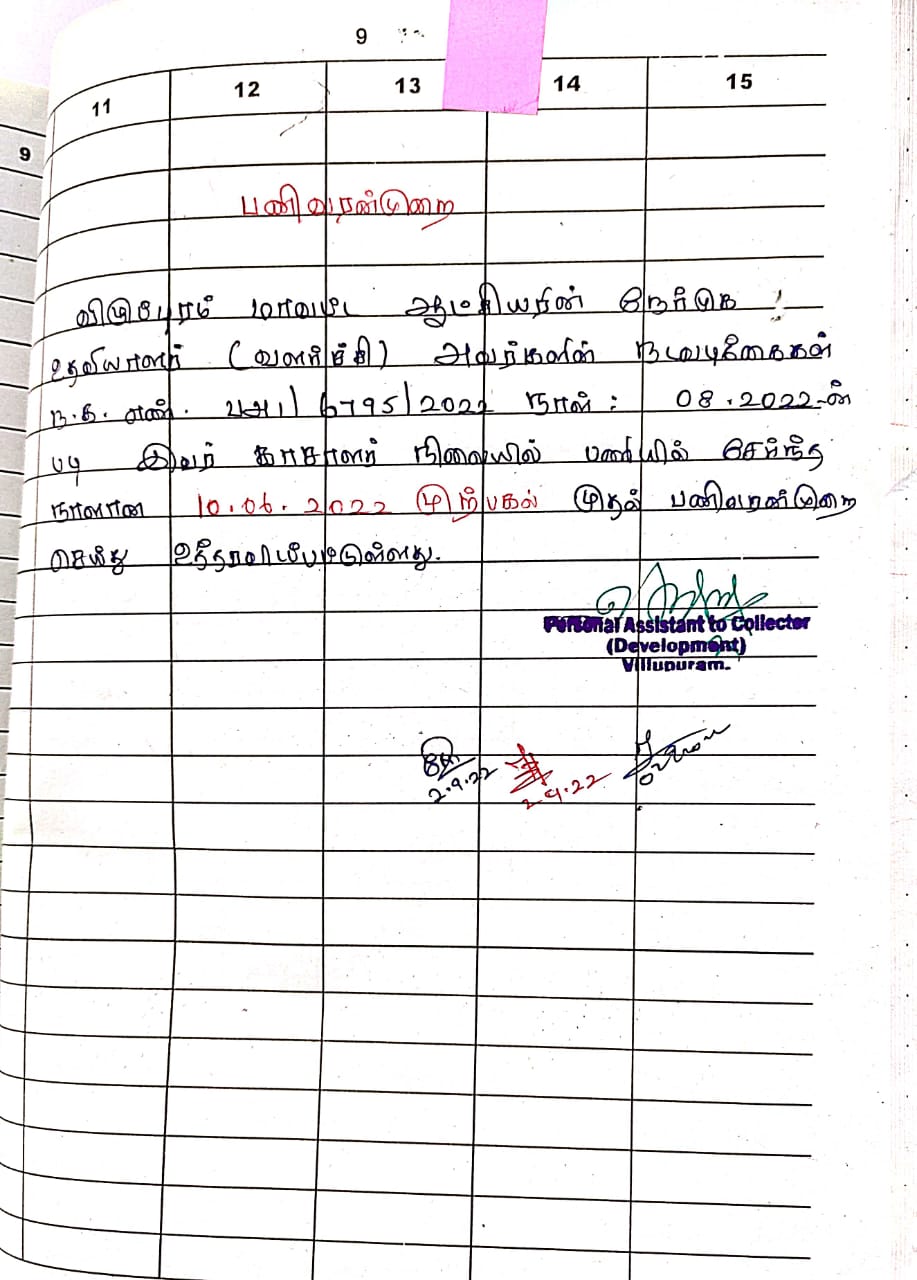 9
11 12 13 14 15
9
பணிவரன்முறை
விழுப்புரம் மாவட்ட ஆட்சியரின் நேர்முக
உதவியாளர் (வளர்ச்சி) அவர்களின் நடவடிக்கைகள்
ந.க. எண். /6795/2022 நாள்: 08.2022-ன்
படி இவர் நிலையில் பணியில் சேர்ந்த
நாளான 10.06.2022 முற்பகல் முதல் பணிவரன்முறை
செய்து உத்தரவிடப்பட்டுள்ளது.
Personal Assistant to Collector
(Development)
Villupuram.
2.9.22 2.9.22